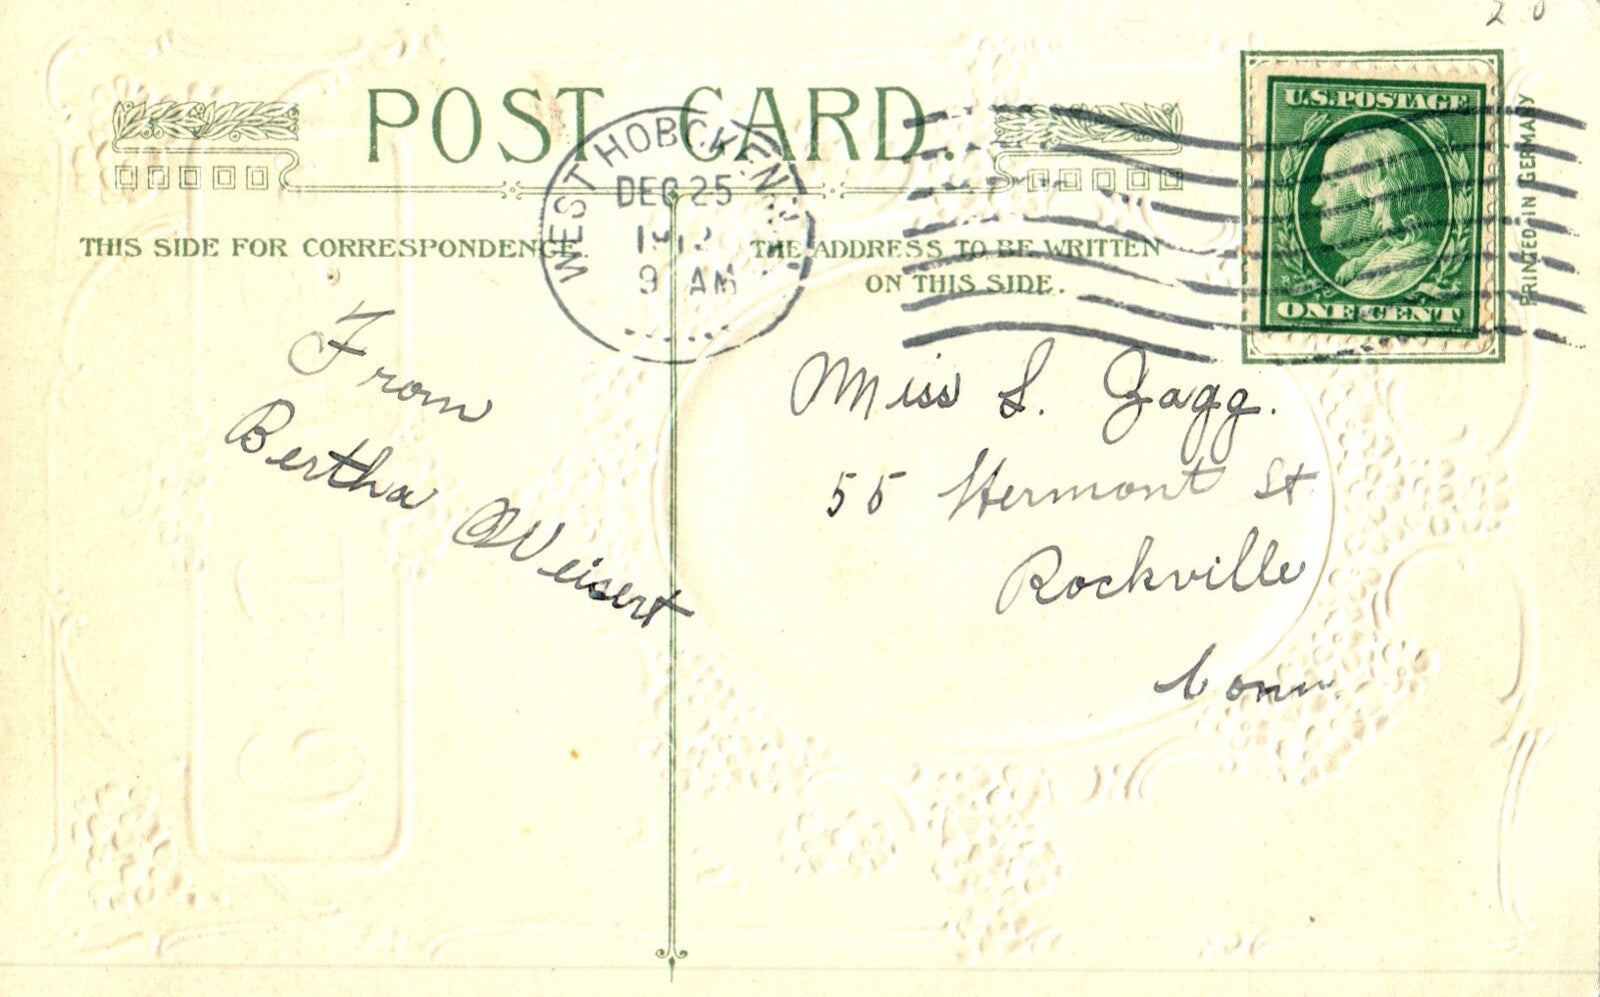 POST CARD.
WEST HOBOKEN, N.J.
DEC 25
1912
9 AM
U.S. POSTAGE
ONE CENT
PRINTED IN GERMANY
THIS SIDE FOR CORRESPONDENCE.
THE ADDRESS TO BE WRITTEN
ON THIS SIDE.
From
Bertha Weisert
Miss L. Zagg.
55 Vermont St
Rockville
Conn.